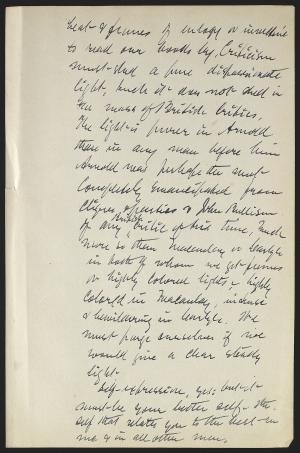 heat & fumes of eulogy or invective
to read our books by. Criticism
must shed a pure dispassionate
light, such it does not shed in
the mass of British Critics.
The light is purer in Arnold
than in any man before him
Arnold was perhaps the most
completely emancipated from
cliques & parties & John Bullism
of any British critic of his time, much
more so than Macaulay or Carlyle
in both of whom we get fumes
or highly colored lights, highly
colored in Macaulay, intense
& bewildering in Carlyle. We
must purge ourselves if we
would give a clear steady
light.
Self-expression, yes; but it
must be your better self - the
self that relates you to the best in
me & in all other men.